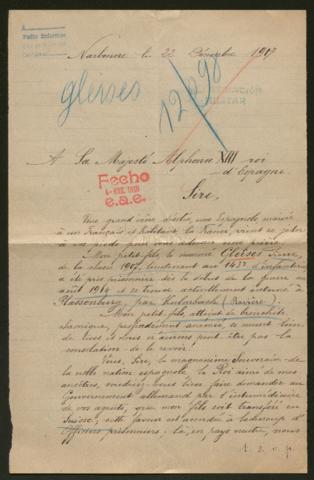 Narbonne le 22 Décembre 1917
Gleises
12098
INFORMACIÓN
MILITAR
A Sa Majesté Alphonse XIII roi
d'Espagne.
Fecho
1918
e.a.e.
Sire,
Une grand'mère désolée, une Espagnole mariée
à un Français et habitant la France, vient se jeter
à vos pieds pour vous adresser une prière.
Mon petit-fils, le nommé Gleises Pierre,
de la classe 1907, lieutenant au 143e d'infanterie
a été pris prisonnier dès le début de la guerre
août 1914 et se trouve actuellement interné à
Plassenburg, par Kulmbach (Bavière).
Mon petit-fils atteint de bronchite
chronique, profondément anémié, se meurt loin
de tous et nous n'aurons peut être pas la
consolation de le revoir!
Vous, Sire, le magnanime Souverain de
la noble nation espagnole, le Roi aimé de mes
ancêtres, voudriez-vous bien faire demander au
Gouvernement allemand par l'intermédiaire
de vos agents, que mon fils soit transféré en
Suisse; cette faveur est accordée à beaucoup d'
officiers prisonniers. Là, en pays neutre, nous